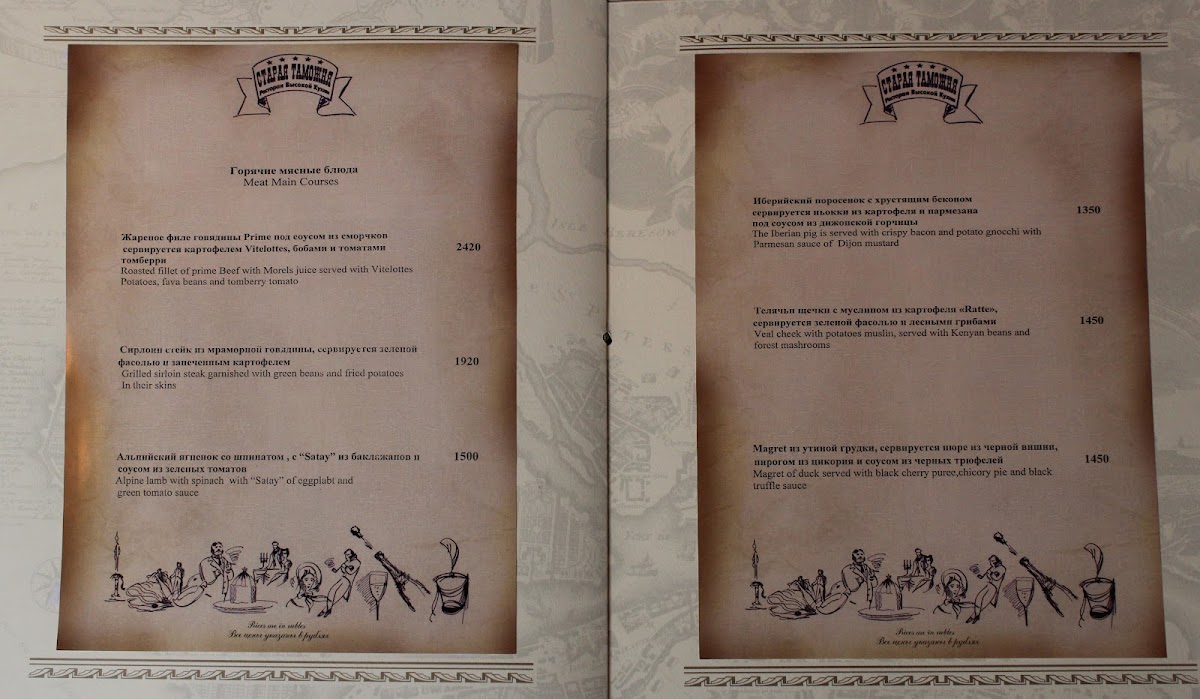 СТАРАЯ ТАМОЖНЯ
Ресторан Высокой Кухни
Горячие мясные блюда
Meat Main Courses
Жареное филе говядины Prime под соусом из сморчков
сервируется картофелем Vitelottes, бобами и томатами
томберри
2420
Roasted fillet of prime Beef with Morels juice served with Vitelottes
Potatoes, fava beans and tomberry tomato
Сирлоин стейк из мраморной говядины, сервируется зеленой
фасолью и запеченным картофелем
1920
Grilled sirloin steak garnished with green beans and fried potatoes
In their skins
Альпийский ягненок со шпинатом , с “Satay” из баклажанов и
соусом из зеленых томатов
1500
Alpine lamb with spinach with “Satay” of eggplabt and
green tomato sauce
Prices are in rubles
Все цены указаны в рублях
СТАРАЯ ТАМОЖНЯ
Ресторан Высокой Кухни
Иберийский поросенок с хрустящим беконом
сервируется ньокки из картофеля и пармезана
под соусом из дижонской горчицы
1350
The Iberian pig is served with crispy bacon and potato gnocchi with
Parmesan sauce of Dijon mustard
Телячьи щечки с муслином из картофеля «Ratte»,
сервируется зеленой фасолью и лесными грибами
1450
Veal cheek with potatoes muslin, served with Kenyan beans and
forest mashrooms
Magret из утиной грудки, сервируется пюре из черной вишни,
пирогом из цикория и соусом из черных трюфелей
1450
Magret of duck served with black cherry puree,chicory pie and black
truffle sauce
Prices are in rubles
Все цены указаны в рублях